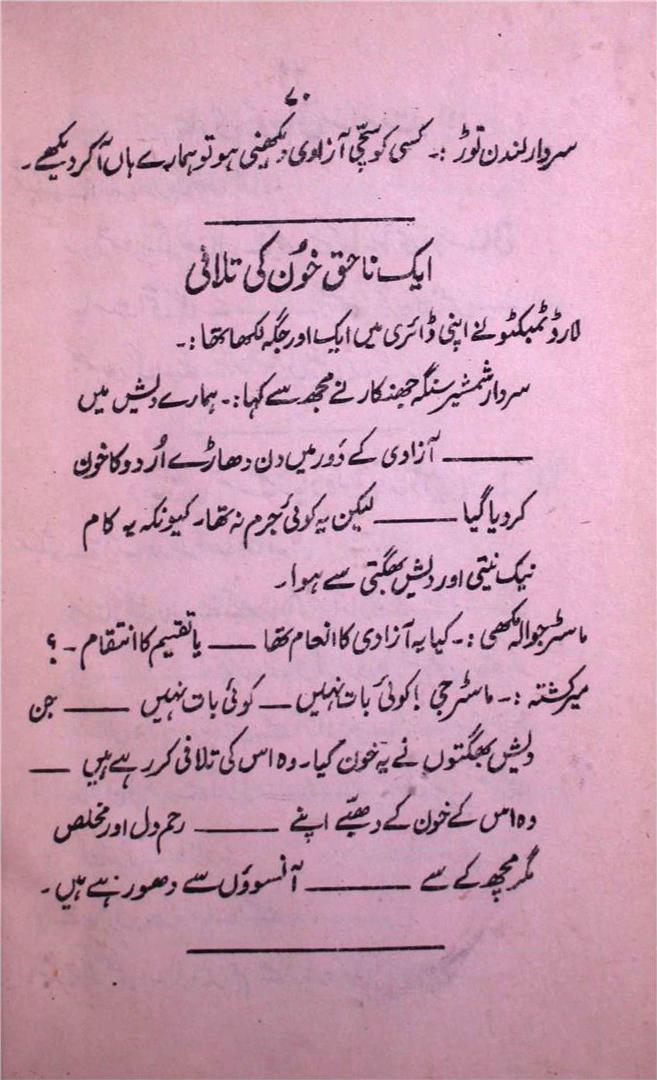 ۷۰
سردار لندن توڑ :۔ کسی کو سچّی آزادی دیکھنی ہو تو ہمارے ہاں آ کر دیکھے۔
ایک ناحق خُون کی تلافی
لارڈ ٹمبکٹو نے اپنی ڈائری میں ایک اور جگہ لکھا تھا :۔
سردار شمشیر سنگھ جھنکار نے مجھ سے کہا :۔ ہمارے دلیش میں
—— آزادی کے دَور میں دن دھاڑے اُردو کا خون
کر دیا گیا —— لیکن یہ کوئی جُرم نہ تھا۔ کیونکہ یہ کام
نیک نیتی اور دلیش بھگتی سے ہوا۔
ماسٹر جوالہ مکھی :۔ کیا یہ آزادی کا انعام تھا —— یا تقسیم کا انتقام ۔؟
میر کشتہ :۔ ماسٹر جی! کوئی بات نہیں — کوئی بات نہیں —— جن
دلیش بھگتوں نے یہ خون کیا۔ وہ اس کی تلافی کر رہے ہیں —
وہ اس کے خون کے دھبّے اپنے —— رحم دل اور مخلص
مگرمچھ کے سے —— آنسوؤں سے دھو رہے ہیں۔